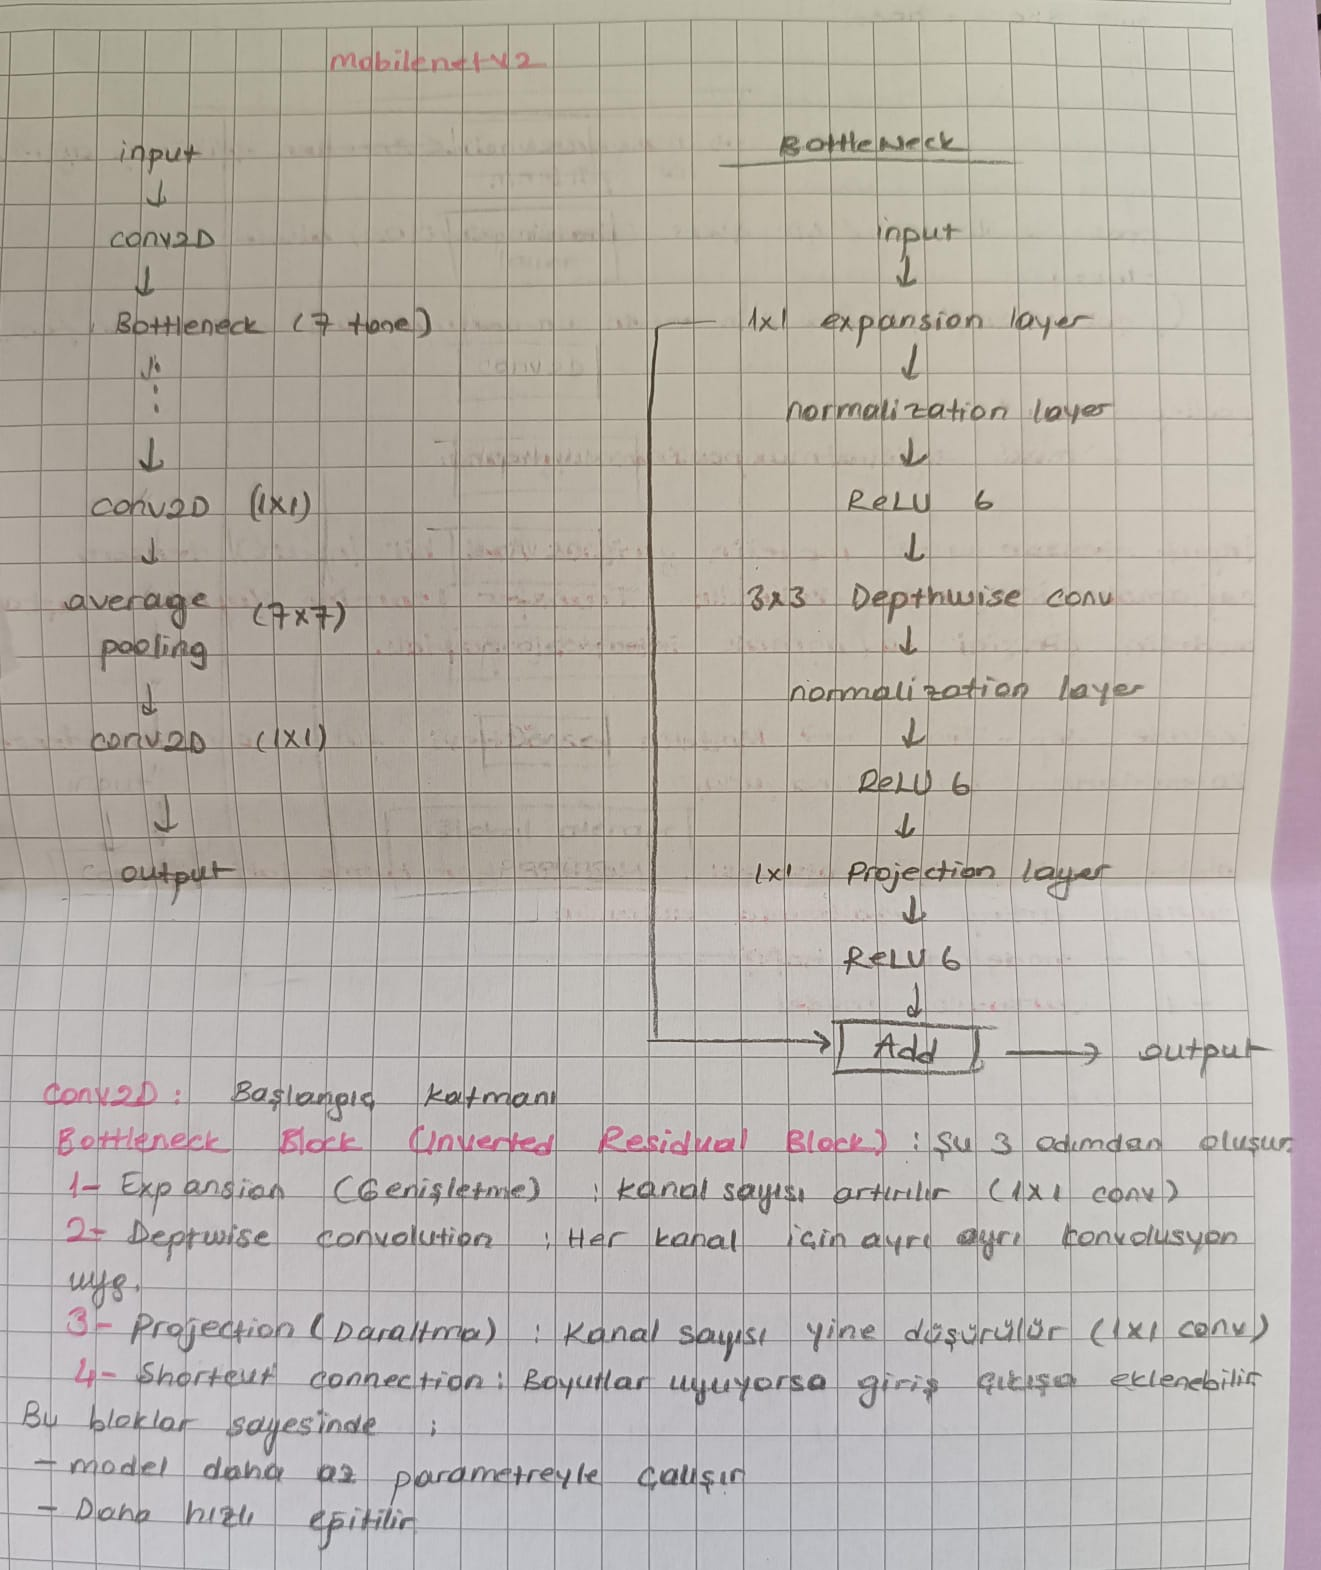 mobilenetv2
input
↓
conv2D
↓
Bottleneck (7 tane)
↓
⋮
↓
conv2D (1x1)
↓
average (7x7)
pooling
↓
conv2D (1x1)
↓
output
BottleNeck
input
↓
1x1 expansion layer
↓
normalization layer
↓
ReLU 6
↓
3x3 Depthwise conv
↓
normalization layer
↓
ReLU 6
↓
1x1 Projection layer
↓
ReLU 6
↓
Add → output
Conv2D: Başlangıç katmanı
Bottleneck Block (Inverted Residual Block) : Şu 3 adımdan oluşur.
1- Expansion (Genişletme) : kanal sayısı artırılır (1x1 conv)
2- Deptwise convolution : Her kanal için ayrı ayrı konvolusyon
uyg.
3- Projection (Daraltma) : Kanal sayısı yine düşürülür (1x1 conv)
4- Shortcut connection : Boyutlar uyuyorsa giriş çıkışa eklenebilir
Bu bloklar sayesinde :
- model daha az parametreyle çalışır
- Daha hızlı eğitilir